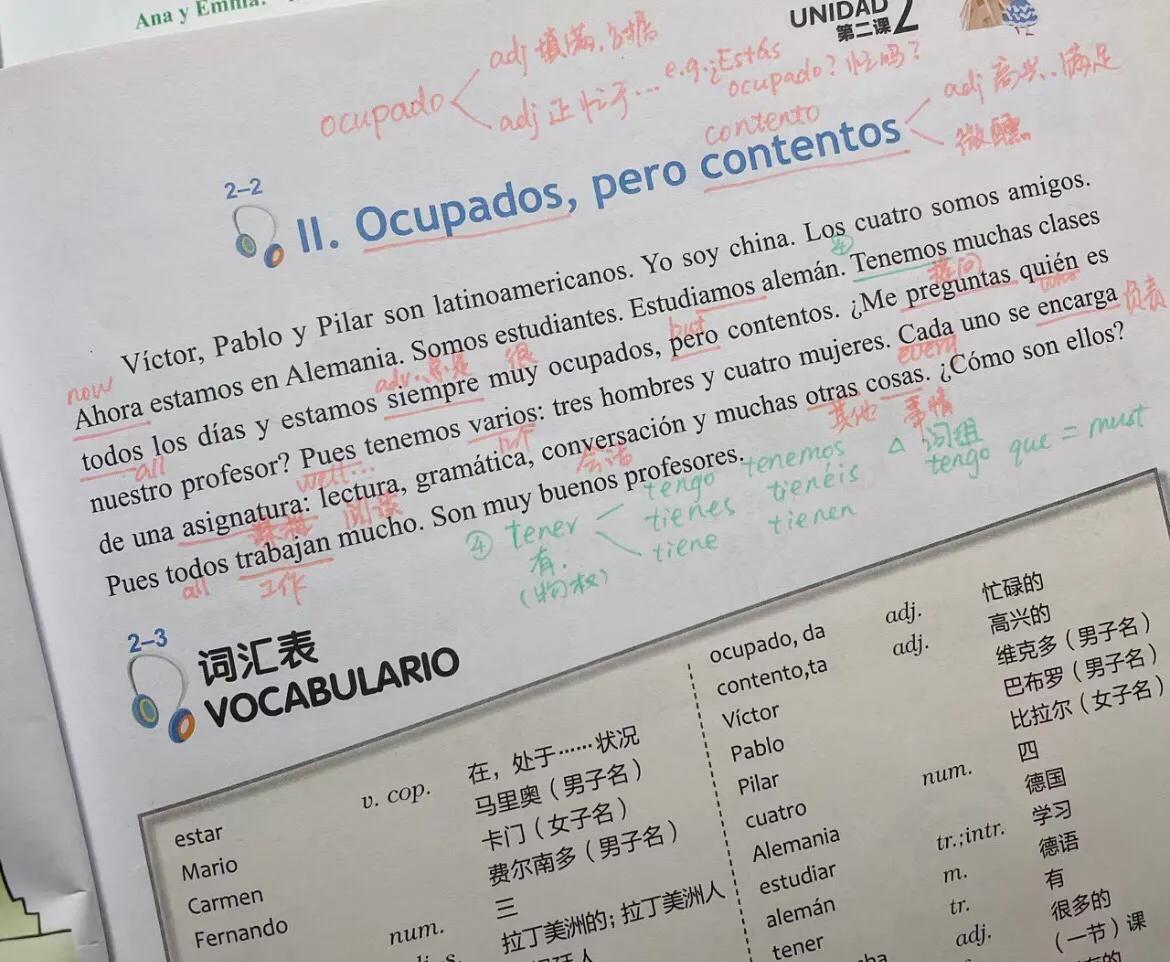 Ana y Emma:
UNIDAD 2
第二课
ocupado
adj 填满,占据
adj 正忙于… e.g. ¿Estás ocupado? 忙吗?
contento
adj 高兴..满足
微醺
2-2
II. Ocupados, pero contentos
Víctor, Pablo y Pilar son latinoamericanos. Yo soy china. Los cuatro somos amigos.
④
now
Ahora estamos en Alemania. Somos estudiantes. Estudiamos alemán. Tenemos muchas clases
adv.总是 很 but 提问
todos los días y estamos siempre muy ocupados, pero contentos. ¿Me preguntas quién es
all well... every 负责
nuestro profesor? Pues tenemos varios: tres hombres y cuatro mujeres. Cada uno se encarga
de una asignatura: lectura, gramática, conversación y muchas otras cosas. ¿Cómo son ellos?
阅读 会话 其他 事情
Pues todos trabajan mucho. Son muy buenos profesores.
all 工作
④ tener
有.
(物权)
tengo tenemos
tienes tienéis
tiene tienen
△ 词组
tengo que = must
2-3
词汇表
VOCABULARIO
estar v. cop. 在，处于……状况
Mario 马里奥（男子名）
Carmen 卡门（女子名）
Fernando 费尔南多（男子名）
num. 三
拉丁美洲的; 拉丁美洲人
ocupado, da adj. 忙碌的
contento,ta adj. 高兴的
Víctor 维克多（男子名）
Pablo 巴布罗（男子名）
Pilar 比拉尔（女子名）
cuatro num. 四
Alemania 德国
estudiar tr.;intr. 学习
alemán m. 德语
tener tr. 有
adj. 很多的
（一节）课